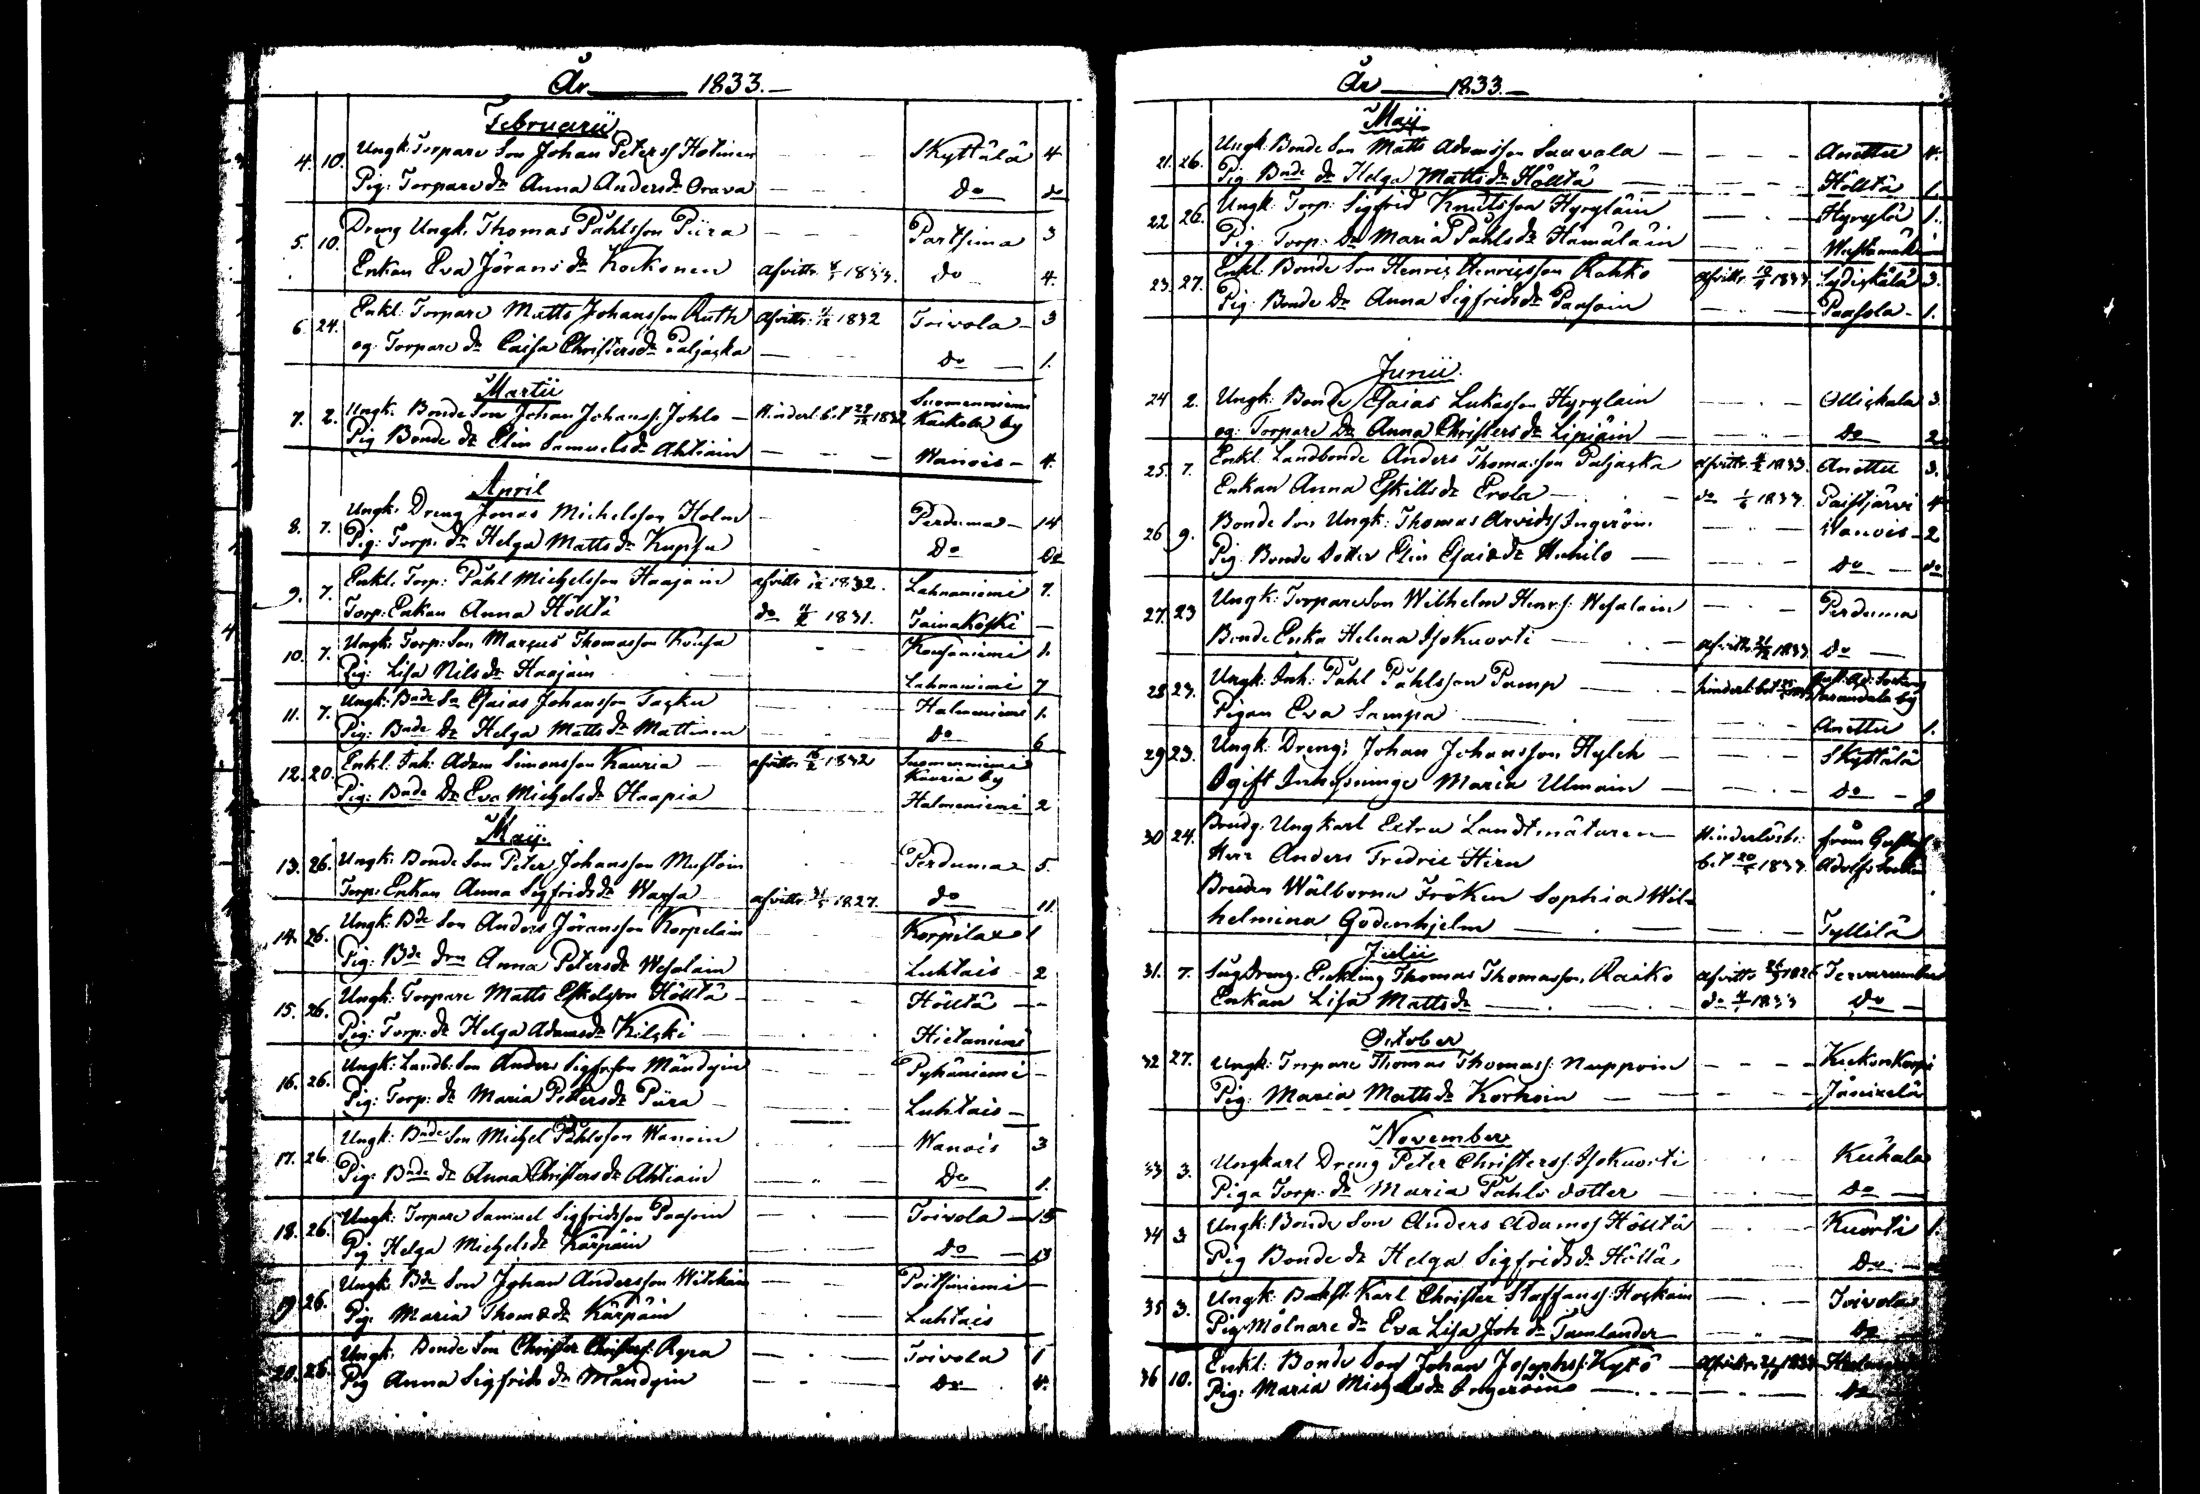 År 1833.
Februarii
4. 10. Ungk: Torpare Son Johan Peterss Hotinen Skyttälä 4
Pig: Torpare dr Anna Anders dr Orava do do
5. 10. Dreng Ungk. Thomas Påhlsson Piira Partsima 3
Enkan Eva Jörans dr Kockonen afvittr. 1833. do 4.
6. 24. Enkl. Torpare Matts Johansson Ruth afvittr. 1832 Toivola 3
og: Torpare dr Caisa Christers dr Paljacka do 1.
Martii
7. 2. Ungk. Bonde Son Johan Johanss. Johlo Hinderl. b. 1832 Suomenniemi
by
Pig Bonde dr Elin Samuels dr Ahtiain Wanois 4.
April
8. 7. Ungk. Dreng Jonas Michelsson Holm Perduma 14
Pig: Torp. dr Helga Matts dr Kupsa do do
9. 7. Enkl. Torp: Påhl Michelsson Haajain afvittr 1832. Lahnaniemi 7.
Torp: Enkan Anna Höltä do 1831. Tainakoski
10. 7. Ungk: Torp: Son Marcus Thomasson Kousa Kousaniemi 1.
Pig: Lisa Nils dr Haajain Lahnaniemi 7
11. 7. Ungk: Bnde Sn Esaias Johansson Tacku Halmeniemi 1.
Pig: Bnde Dr Helga Matts dr Mattinen do 6
12. 20. Enkl. Inh: Adam Simonsson Kauria afvittr 1832 Suomenniemi
Kauria by
Pig: Bnde Dr Eva Michels dr Haapia Halmeniemi 2
Maji.
13. 26. Ungk: Bonde Son Peter Johansson Mustoin Perduma 5.
Torp: Enkan Anna Sigfrids dr Wapsa afvittr 1827. do 11.
14. 26. Ungk: Bde Son Anders Jöransson Korpelain Korpilax 1
Pig: Bde drn Anna Peters dr Wesalain Luhtais 2
15. 26. Ungk: Torpare Matts Eskelson Hölttä Hölttä
Pig: Torp: dr Helga Adams dr Kilcki Hietaniemi
16. 26. Ungk: Landb: Son Anders Sigfrsson Mändyin Pyhäniemi
Pig: Torp: dr Maria Peters dr Piira Luhtais
17. 26. Ungk: Bnde Son Michel Påhlsson Wanoin Wanois 3
Pig: Bnde dr Anna Christers dr Ahtiain do 1.
18. 26. Ungk: Torpare Samuel Sigfridsson Paasoin Toivola 15
Pig Helga Michels dr Kärpäin do 13
19. 26. Ungk: Bde Son Johan Andersson Witikain Poitsiniemi
Pig. Maria Thomæ dr Kärpäin Luhtais
20. 26. Ungk. Bonde Son Christer Christerss. Ryra Toivola 1
Pig Anna Sigfrids dr Mändyin do 4.
År 1833.
Maji
21. 26. Ungk: Bonde Son Matts Adamsson Sauvala Anettu 4.
Pig Bnde dr Helga Matts dr Hölttä Hölttä 1.
22 26. Ungk: Torp: Sigfrid Knutsson Hyryläin Hyrylä 1.
Pig: Torp: Dr Maria Påhls dr Hämäläin
23. 27. Enkl: Bonde Son Henric Henricsson Rahko afvittr 1833 3.
Pig: Bonde Dr Anna Sigfrids dr Paasoin Paasola 1.
Junii.
24 2. Ungk: Bonde Esaias Lukasson Hyryläin Ollickala 3.
og: Torpare Dr Anna Christers dr Lipiäin do 2
25. 7. Enkl. Landbonde Anders Thomasson Paljacka afvittr 1833. Anettu 3.
Enkan Anna Eskills dr Erola do 1833 Paistjärvi 4
26 9. Bonde Son Ungk: Thomas Arvidss Ingeröin Wanois 2
Pig Bonde Dotter Elin Esaiæ dr Huhilo do do
27. 23 Ungk: Torpare Son Wilhelm Henrs: Wesalain Perduma
Bonde Enka Helena Isokuorti afvittr 1833 do
28 23. Ungk: Inh: Påhl Påhlsson Pamp hinderl. bet
by
Pigan Eva Sampa Anettu 1.
29 23. Ungk: Dreng: Johan Johansson Hylch Skyttälä
Ogift Inhysninge Maria Ulmain do
30 24. Brudg. Ungkarl Extra Landtmätaren Hinderlösb: från Gustaf
Herr Anders Fredric Hirn b. 1833 Adolfs Sockn
Bruden Wälborna Fröken Sophia Wil-
helmina Gödenhjelm Tyllilä
Julii
31. 7. Sågdreng. Enkling Thomas Thomasson Raiko afvittr 1826
Enkan Lisa Matts dr do 1833 do
October
32 27. Ungk: Torpare Thomas Thomass: Nuppoin Kuckonkorpi
Pig: Maria Matts dr Korhoin Jänicelä
November
33 3. Ungkarl Dreng Peter Christerss. Isokuorti Kuhala
Piga Torp: dr Maria Påhls dotter do
34 3 Ungk: Bonde Son Anders Adamss Hölttä Kuorti 1.
Pig Bonde dr Helga Sigfrids dr Hölttä do
35 3. Ungk: Christer Staffanss: Hockain Toivola
Pig Mölnare dr Eva Lisa Joh dr Tamlander do
36 10. Enkl: Bonde Son Johan Josephss: Kytö
Pig: Maria Michels dr Ingeröine do